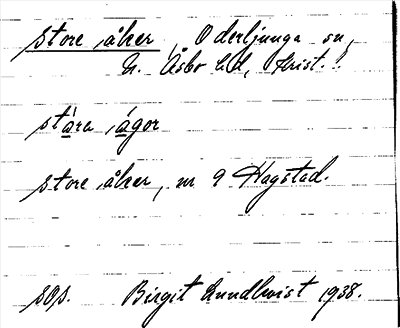 store åker, Oderljunga sn,
N. Åsbo hd, Krist. l.
stàra ågor
store åker, nr 9 Hagstad.
sOp. Birgit Lundkvist 1938.